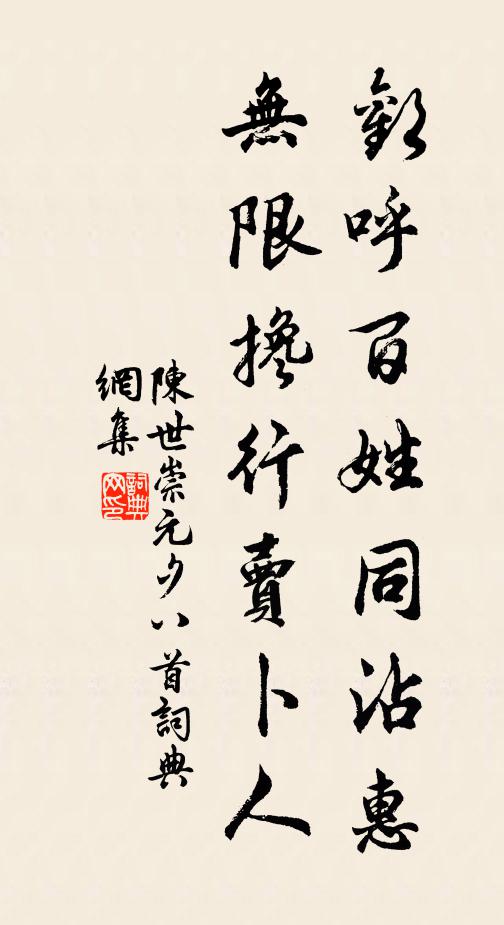 歡呼百姓同沾惠
無限攙行賣卜人
陳世崇元夕八首詞典
網集
詞典网印